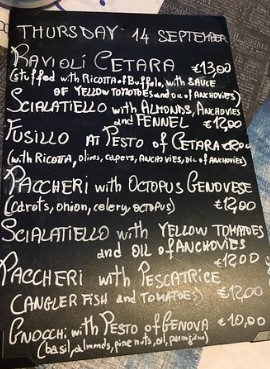 THURSDAY 14 SEPTEMBER
RAVIOLI CETARA €13,00
(stuffed with RICOTTA of Buffalo, with SAUCE
OF YELLOW TOMATOES and OIL of ANCHOVIES)
SCIALATIELLO with ALMONDS, ANCHOVIES
and FENNEL €12,00
FUSILLO AT PESTO of CETARA
(with RICOTTA, olives, capers, ANCHOVIES, OIL of ANCHOVIES)
PACCHERI with OCTOPUS GENOVESE
(carots, onion, celery, octopus) €12,00
SCIALATIELLO with YELLOW TOMATOES
and OIL of ANCHOVIES
€12,00
PACCHERI with PESCATRICE
(ANGLER FISH and TOMATOES) €12,00
GNOCCHI with PESTO of GENOVA
€10,00
(basil, almonds, pine nuts, oil, parmigiano)